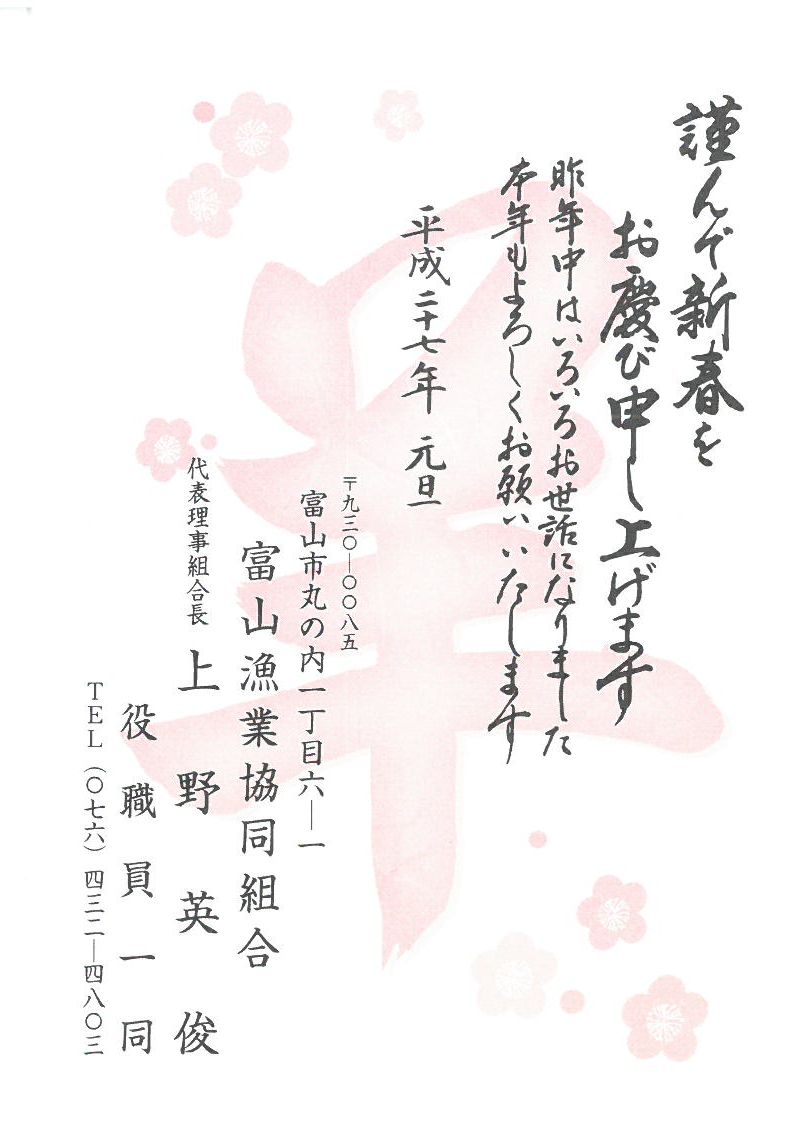 謹んで新春を
お慶び申し上げます
昨年中はいろいろお世話になりました
本年もよろしくお願いいたします
平成二十七年 元旦
〒九三〇―〇〇八五
富山市丸の内一丁目六―一
富山漁業協同組合
代表理事組合長 上野英俊
役職員一同
TEL(〇七六)四三二―四八〇三